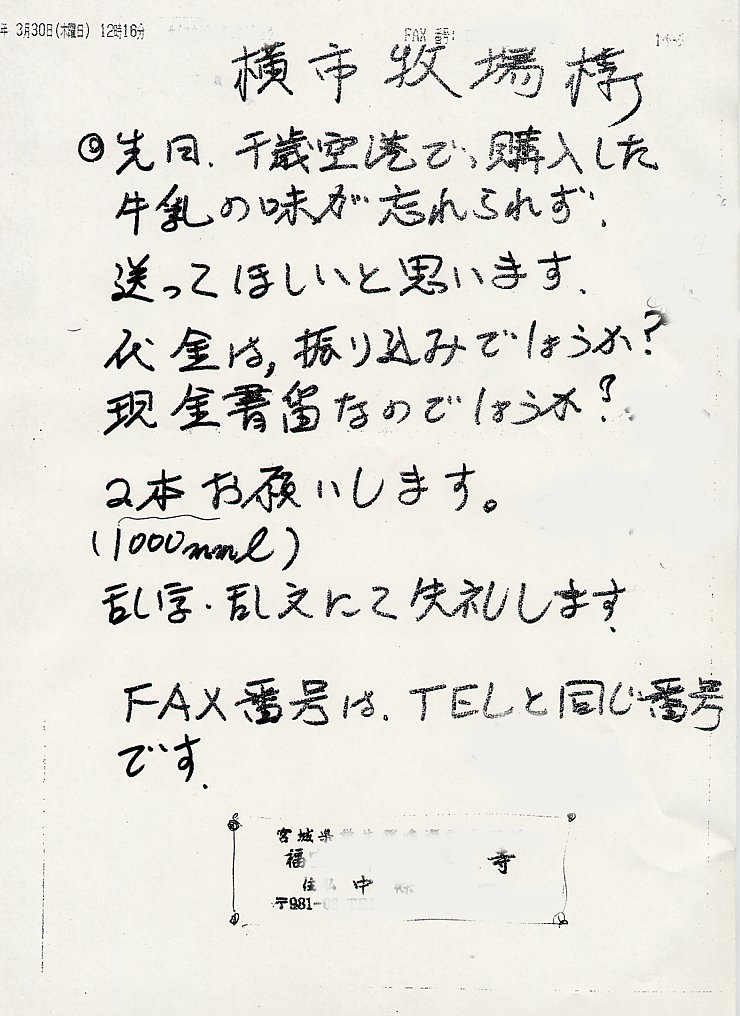 年 3月30日(木曜日) 12時16分 FAX 番号:
横市牧場様
先日、千歳空港で、購入した
牛乳の味が忘れられず、
送ってほしいと思います.
代金は,振り込みでしょうか?
現金書留なのでしょうか?
2本お願いします。
(1000mml)
乱字・乱文にて失礼します.
FAX番号は、TELと同じ番号
です.
宮城県
福 寺
住 中
〒981-03 TEL